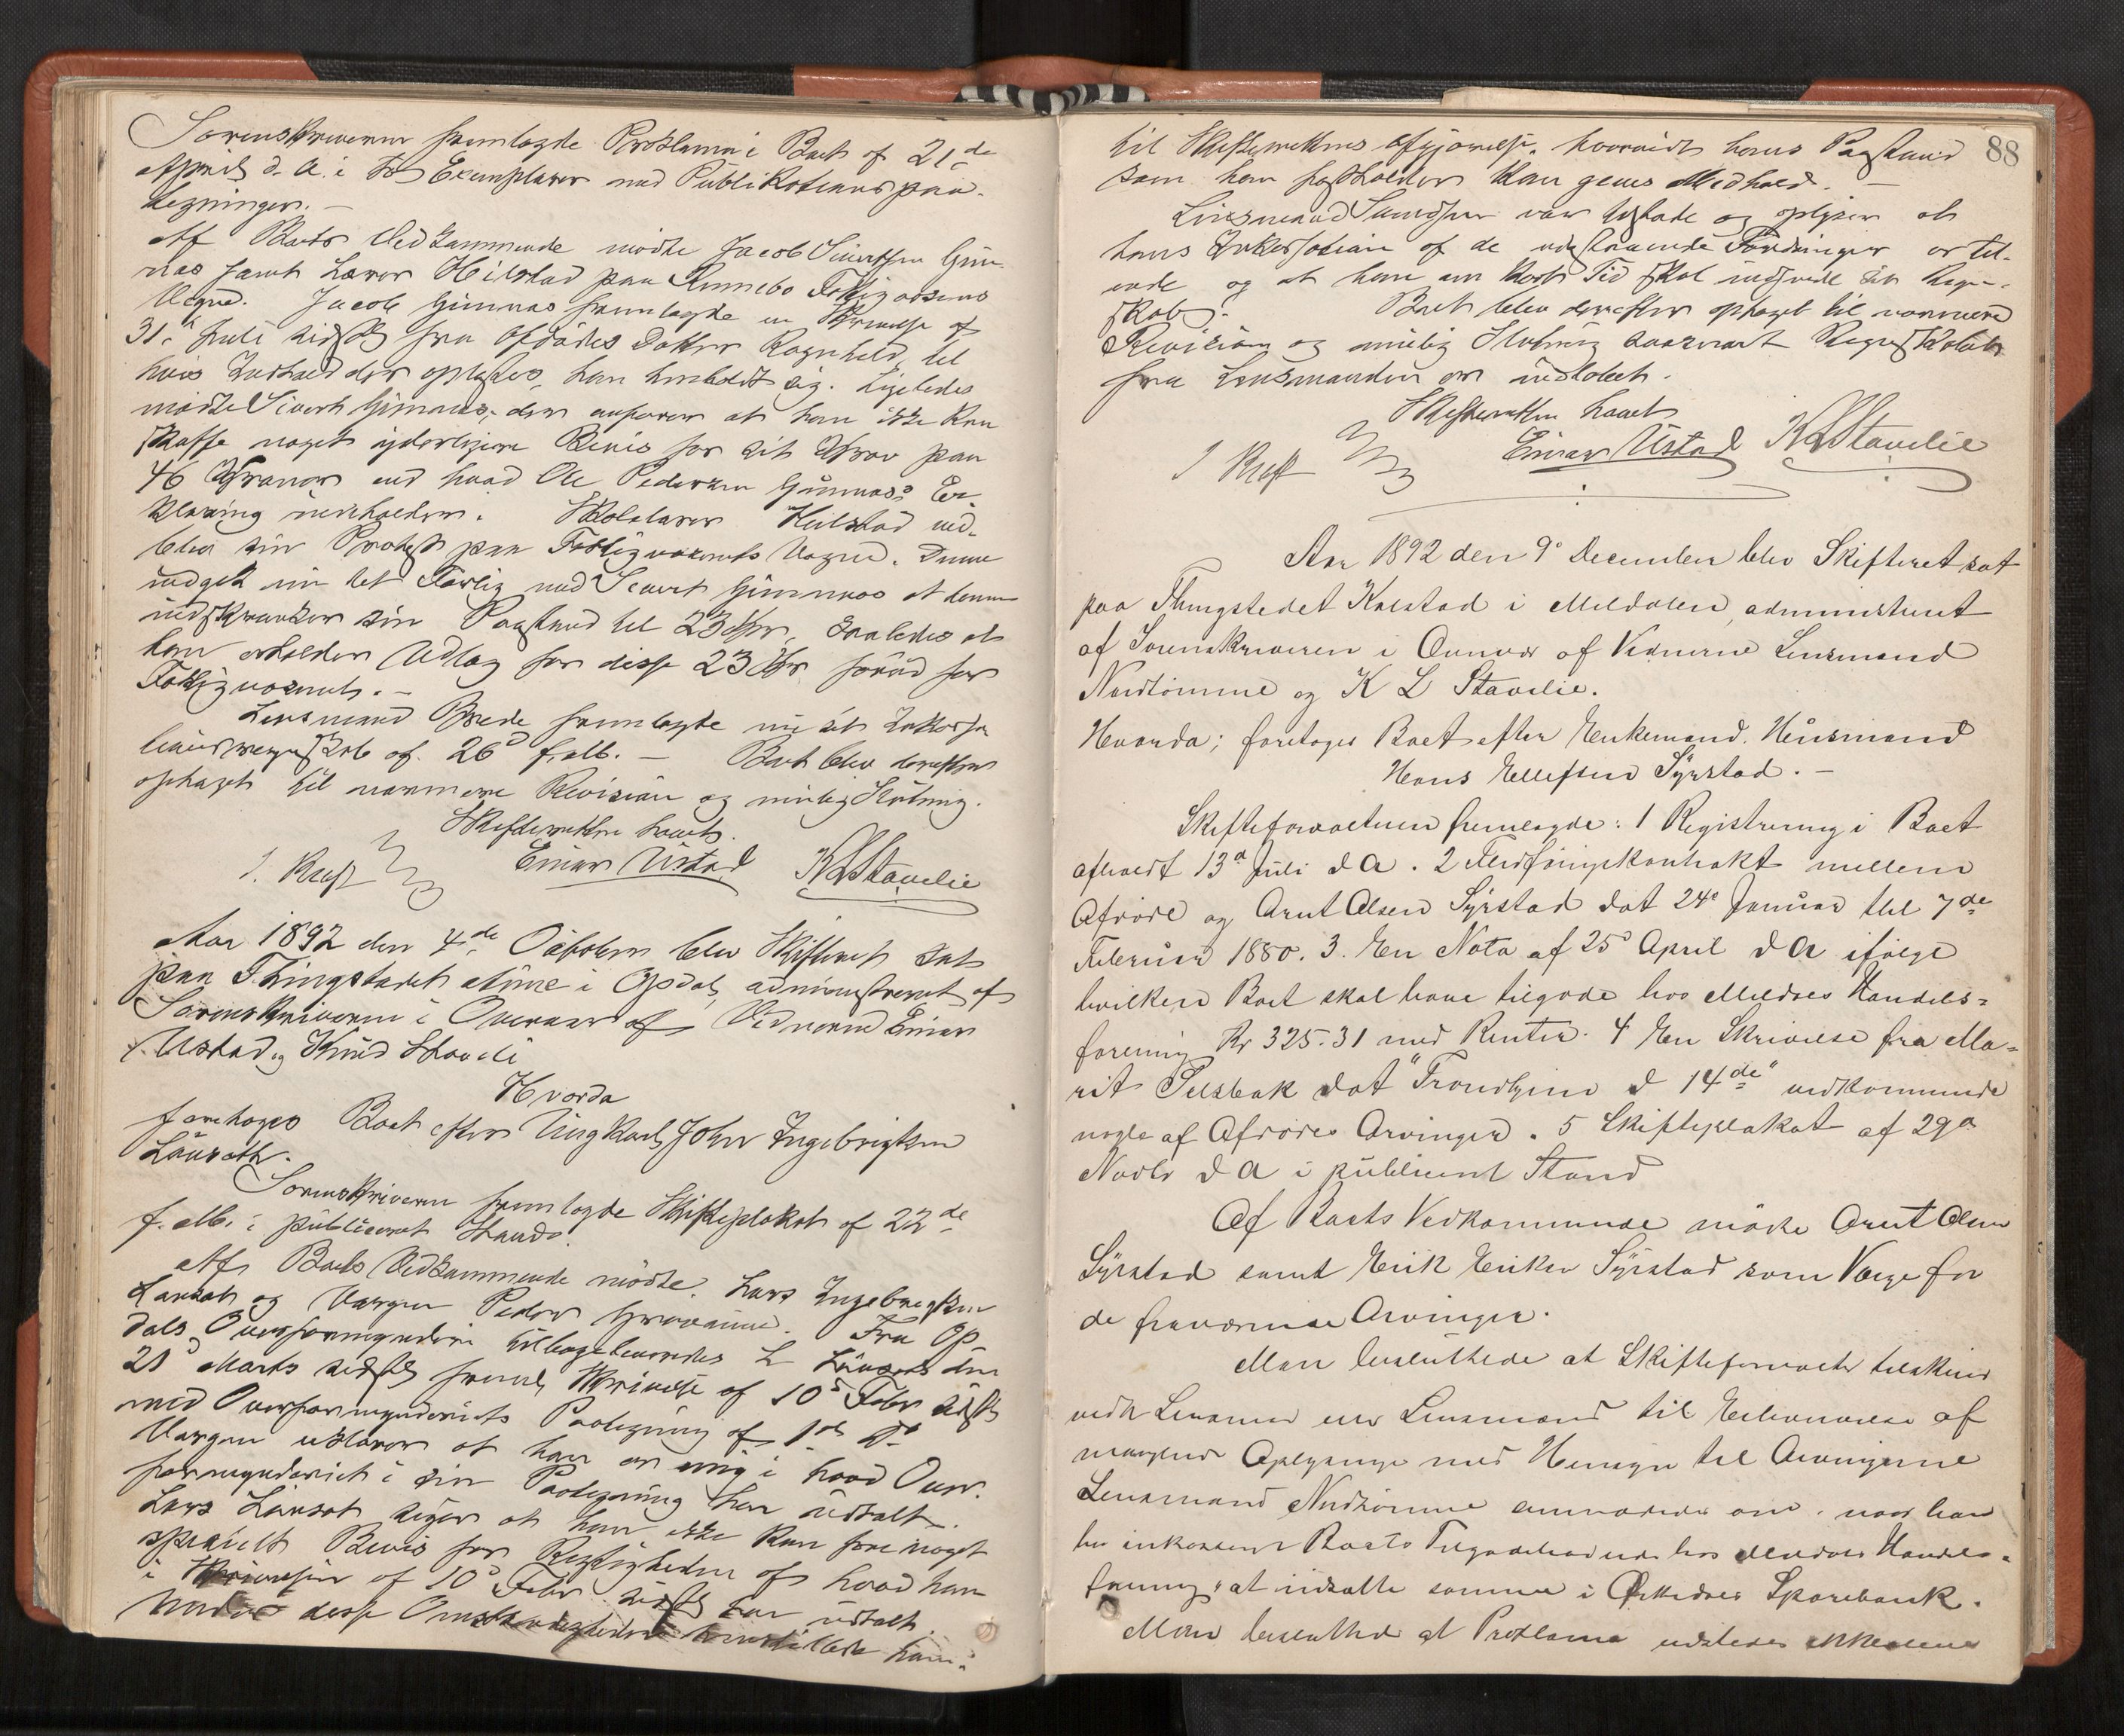 Sorenskriveren fremlagde Proklama i Boet af 21de
April d. A. i to Exemplarer med Publikationspaa-
tegninger. —
Af Boets Vedkommende mødte Jacob Sivertsen Gim-
nas samt Lærer Heilstad paa Rennebo Fattigvæsens
Vegne. Jacob Gimnas fremlagde en Skrivelse af
31te Juli sidstl fra Afdødes Datter Ragnhild, til
hvis Indhold der oplystes, han henholdt sig. Ligeledes
mødte Sivert Gimnas, der anfører at han ikke kan
skaffe noget yderligere Bevis for sit Krav paa
46 Kroner end hvad Ole Pedersen Gimnas's Er-
klæring indeholder. Skolelærer Heilstad ned-
lagde sin Protest paa Fattigvæsenets Vegne. Denne
indgik nu det Forlig med Sivert Gimnas at denne
indskrænker sin Paastand til 23 Kr, saaledes at
han erholder Udlæg for disse 23 Kr forud for
Fattigvæsenet. —
Lensmand Brede fremlagde nu sit Inkassa-
tionsregnskab af 26d f. Mb. — Boet blev derefter
optaget til nærmere Revision og mulig Slutning.
Skifteretten hævet.
I. Rust Einar Ustad K L Stavelie
Aar 1892 den 4de October blev Skifteret sat
paa Thingstedet Aune i Opdal, administreret af
Sorenskriveren i Overvær af Vidnerne Einar
Ustad og Knud Staveli
Hvorda
foretoges Boet efter Ungkarl John Ingebrigtsen
Linsæth.
Sorenskriveren fremlagde Skifteplakat af 22de
f. Mb. i publiceret Stand.
Af Boets Vedkommende mødte. Lars Ingebrigtsen
og Værgen Peder Fra Op-
dals Overformynderi tilbageleveredes den
21d Marts sidstl fremlagt Skrivelse af 10d Febr sidstl
med Overformynderiets Paategning af
Værgen erklærer at han er enig i hvad Over-
formynderiet i sin Paategning har udtalt.
Lars siger at han ikke kan føre noget
specielt Bevis for Rigtigheden af hvad han
i Skrivelsen af 10d Febr sidstl har udtalt.
Under disse Omstændigheder henstillede han
88
til Skifterettens Afgjørelse, hvorvidt hans Paastand
som han fastholder kan gives Medhold. —
Lensmand var tilstede og oplyser at
hans Inkassation af de udestaaende Fordringer er til-
ende og at han om kort Tid skal indsende sit Regn-
skab. Boet blev derefter optaget til nærmere
Revision og mulig Slutning saasnart Regnskabet
fra Lensmanden er indløbet.
Skifteretten hævet
I Rust Einar Ustad K L Stavelie
Aar 1892 den 9d December blev Skifteret sat
paa Thingstedet Kalstad i Meldalen, administreret
af Sorenskriveren i Overvær af Vidnerne Lensmand
Nordtømme og K L Stavelie.
Hvorda; foretoges Boet efter Enkemand. Husmand
Hans Ellefsen Syrstad. —
Skifteforvalteren fremlagde: 1 Registrering i Boet
afholdt 13d Juli d A. 2 Fledføringskontrakt mellem
Afdøde og Arnt Olsen Syrstad dat 24d Januar thl 7de
Februar 1880. 3. En Nota af 25d April d A ifølge
hvilken Boet skal have tilgode hos Meldals Handels=
forening Kr 325.31 med Renter. 4 En Skrivelse fra Ma=
rit Selsbak dat "Trondhjem d 14de" vedkommende
nogle af Afdødes Arvinger. 5 Skifteplakat af 29d
Novbr d A i publiceret Stand
Af Boets Vedkommende mødte Arnt Olsen
Syrstad samt Erik Eriksen Syrstad som Værge for
de fraværende Arvinger.
Man besluttede at Skifteforvalter tilskriver
vedk Lensmand til Erhvervelse af
manglende Oplysninger med Hensyn til Arvingerne
Lensmand Nordtømme anmodedes om, naar han
har inkasseret Boets Tilgodehavende hos Meldals Handels=
forening, at indsætte samme i Orkedals Sparebank.
Man besluttede at Proklama udstedes